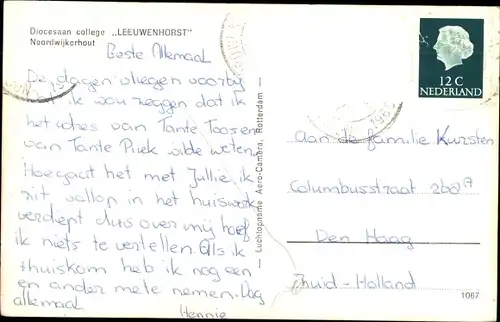 Diocesaan college „LEEUWENHORST"
Noordwijkerhout
Beste Allemaal
De dagen vliegen voorbij
ik wou zeggen dat ik
het adres van Tante Toosen
van Tante Piek wilde weten.
Hoegaat het met Jullie ik
zit vollop in het huiswerk
verdiept dus over mij hoef
ik niets te vertellen. Als ik
thuiskom heb ik nog een
en ander mete nemen. Dag
allemaal
Hennie
Luchtopname Aero-Camera, Rotterdam
12 C
NEDERLAND
aan de familie Kursten
Columbusstraat 268A
Den Haag
Zuid-Holland
1067